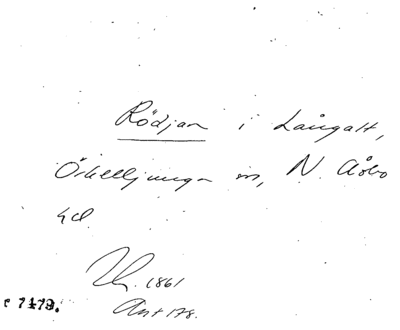 Rödjan i Långalt,
Örkelljunga sn, N. Åsbo
hd.
1861
Ant 178.
c 7479.